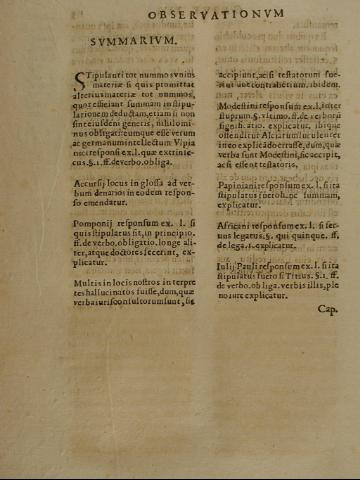 OBSERVATIONVM
SVMMARIVM.
STipulanti tot nummos vnius
materiæ si quis promittat
alterius materiæ tot nummos,
quot efficiant summam in stipu
lationem deductam, etiam si non
sint eiusdem generis, nihilomi
nus obligari: eumque esse verum
ac germanum intellectum Vlpia
nici responsi ex l. quæ extrinse
cus. §. 1. ff. de verbo. obliga.
Accursij locus in glossa ad ver
bum denarios in eodem respon
so emendatur.
Pomponij responsum ex. l. si
quis stipulatus sit, in principio.
ff. de verbo. obligatio. longe ali
ter, atque doctores fecerint, ex
plicatur.
Multis in locis nostros interpre
tes hallucinatos fuisse, dum, quæ
verba iurisconsultorum sunt, sic
accipiunt, ac si testatorum fue
rint
Modestini responsum ex. l. inter
stuprum §. vltimo. ff. de verborū
signific. explicatur, ibique
offenditur Alciatum
in eo explicādo errasse, dum, quæ
verba sunt Modestini, sic accipit,
ac si essent testatoris,
Papiniani responsum ex. l. si ita
stipulatus fuero, hāc summam,
explicatur.
Africani responsum ex. l. si ser
uus legatus. §. qui quinque. ff.
de lega. 1. explicatur.
Iulij Pauli responsum ex. l. si ita
stipulatus fuero si Titius. §. 1. ff.
de verbo. obliga. verbis illis, ple
no iure explicatur.
Cap.